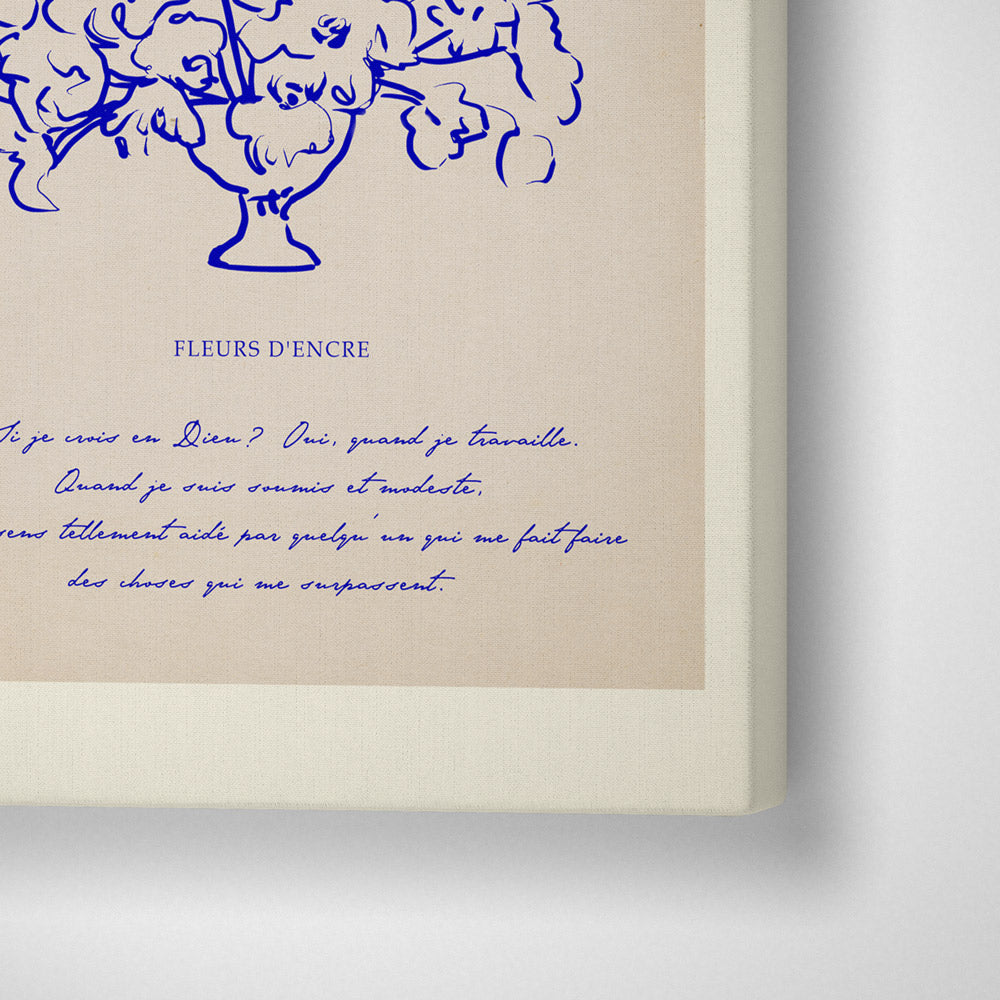 FLEURS D'ENCRE
Si je crois en Dieu? Oui, quand je travaille.
Quand je suis soumis et modeste,
sens tellement aidé par quelqu'un qui me fait faire
des choses qui me surpassent.